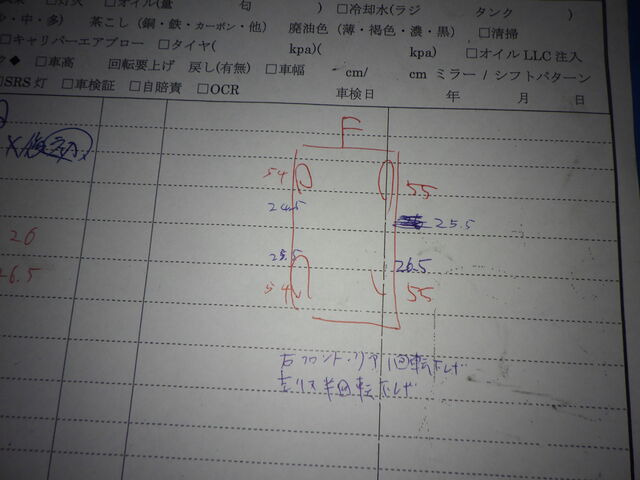 □灯火 □オイル(量 匂 ) □冷却水(ラジ タンク )
・中・多) 茶こし(銅・鉄・カーボン・他) 廃油色(薄・褐色・濃・黒) □清掃
□キャリパーエアブロー □タイヤ( kpa)( kpa) □オイル LLC 注入
ク◆ □車高 回転要上げ 戻し(有無) □車幅 cm/ cm ミラー / シフトパターン
□SRS 灯 □車検証 □自賠責 □OCR 車検日 年 月 日
F
54 55
24.5 25.5
26
25.5 26.5
6.5
54 55
右フロント・リア 1回転下げ
左リア半回転下げ